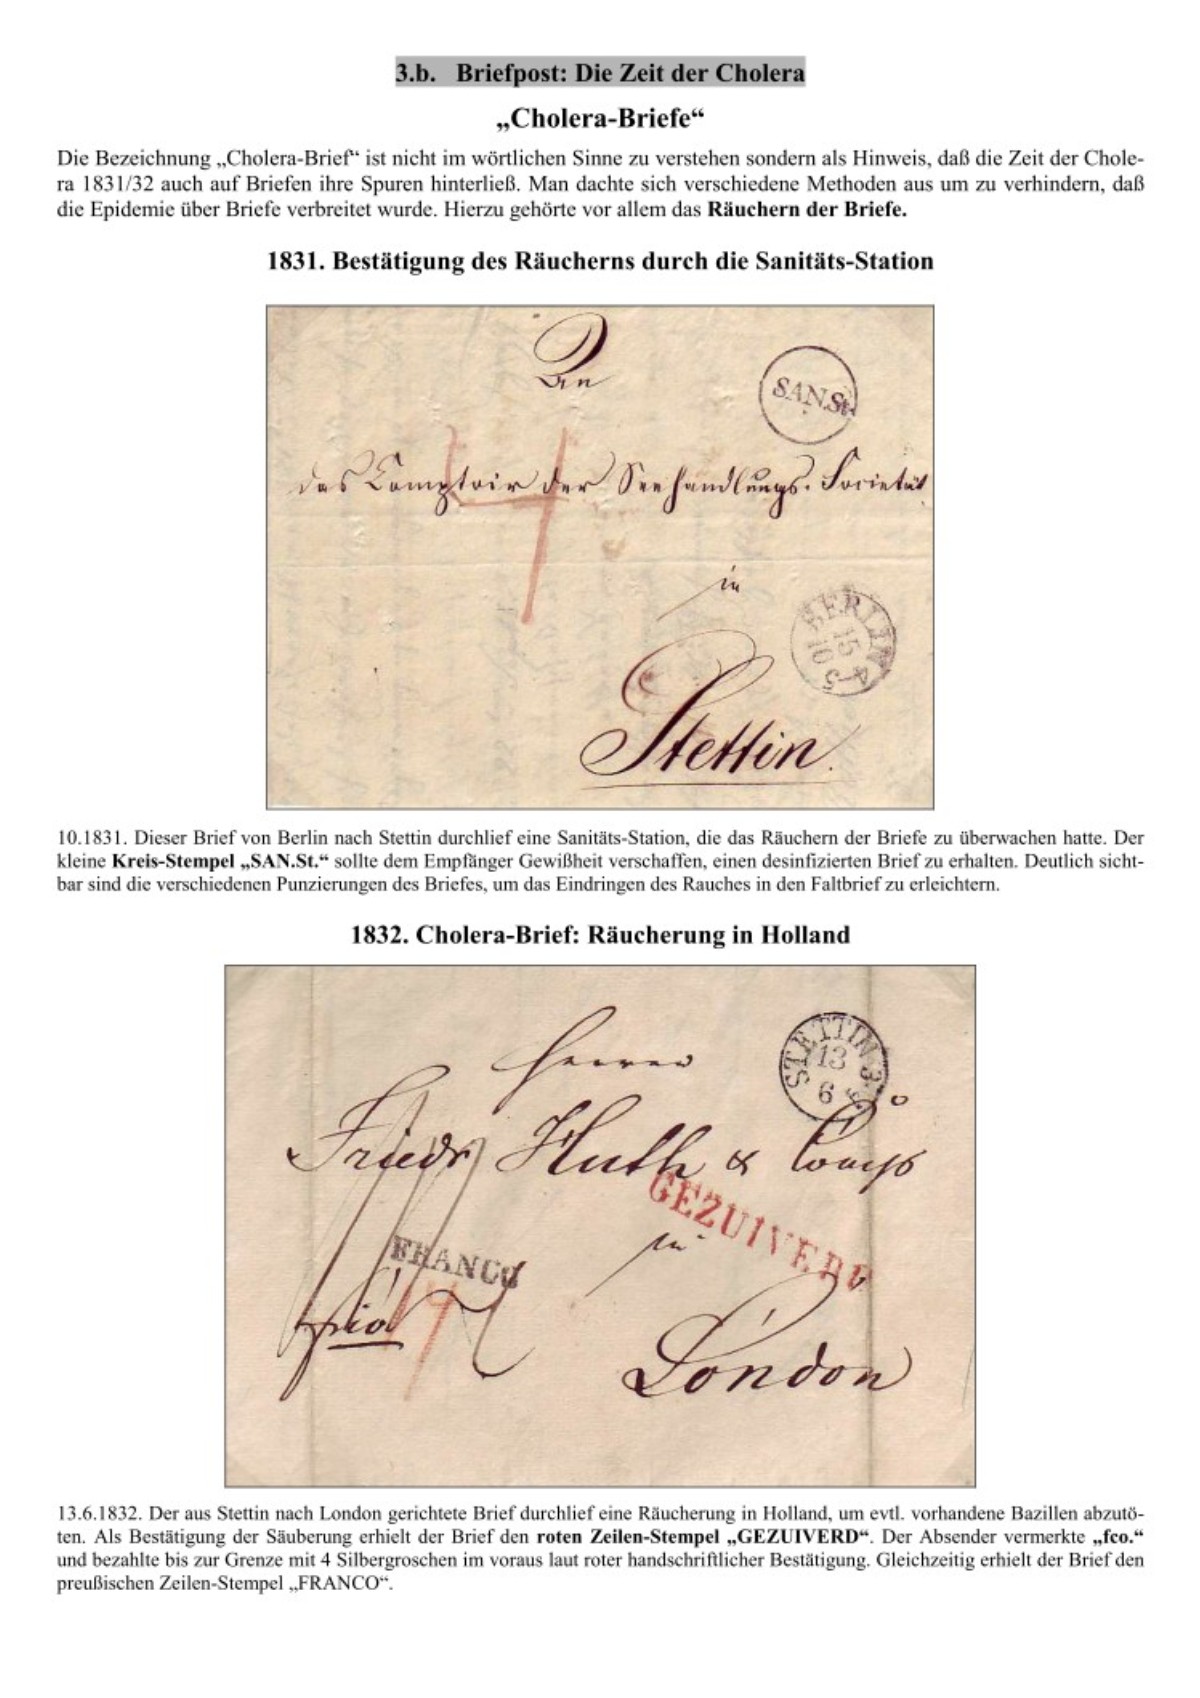 3.b. Briefpost: Die Zeit der Cholera
„Cholera-Briefe“
Die Bezeichnung „Cholera-Brief“ ist nicht im wörtlichen Sinne zu verstehen sondern als Hinweis, daß die Zeit der Chole-
ra 1831/32 auch auf Briefen ihre Spuren hinterließ. Man dachte sich verschiedene Methoden aus um zu verhindern, daß
die Epidemie über Briefe verbreitet wurde. Hierzu gehörte vor allem das Räuchern der Briefe.
1831. Bestätigung des Räucherns durch die Sanitäts-Station
An
SAN.St.
das Comptoir der Seehandlungs-Societät
4
in
BERLIN
15
10
4-5
Stettin.
10.1831. Dieser Brief von Berlin nach Stettin durchlief eine Sanitäts-Station, die das Räuchern der Briefe zu überwachen hatte. Der
kleine Kreis-Stempel „SAN.St.“ sollte dem Empfänger Gewißheit verschaffen, einen desinfizierten Brief zu erhalten. Deutlich sicht-
bar sind die verschiedenen Punzierungen des Briefes, um das Eindringen des Rauches in den Faltbrief zu erleichtern.
1832. Cholera-Brief: Räucherung in Holland
Herren
STETTIN 3
13
6
Friedr Huth & Comp
GEZUIVERD
in
FRANCO
fco
4
London
13.6.1832. Der aus Stettin nach London gerichtete Brief durchlief eine Räucherung in Holland, um evtl. vorhandene Bazillen abzutö-
ten. Als Bestätigung der Säuberung erhielt der Brief den roten Zeilen-Stempel „GEZUIVERD“. Der Absender vermerkte „fco.“
und bezahlte bis zur Grenze mit 4 Silbergroschen im voraus laut roter handschriftlicher Bestätigung. Gleichzeitig erhielt der Brief den
preußischen Zeilen-Stempel „FRANCO“.